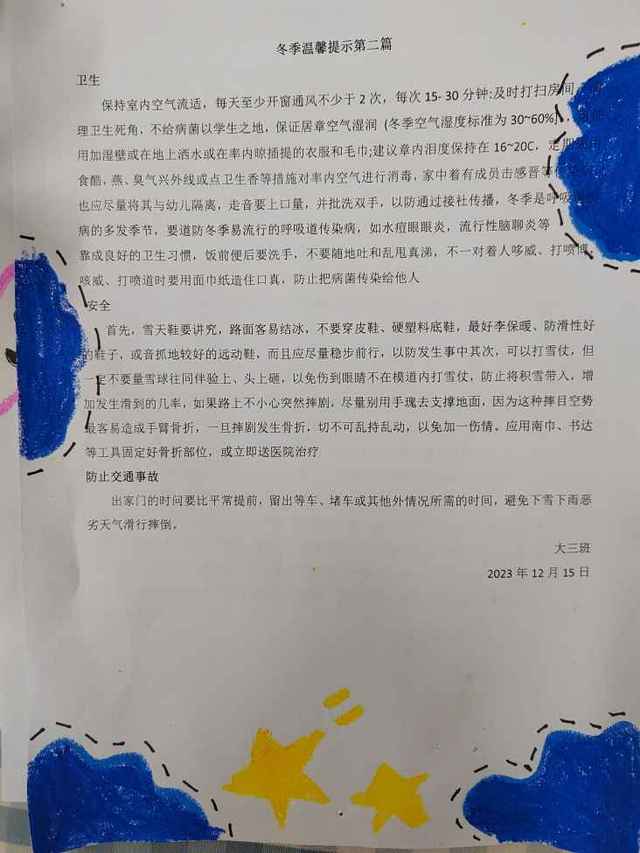 冬季温馨提示第二篇
卫生
保持室内空气流适，每天至少开窗通风不少于 2 次，每次 15- 30 分钟;及时打扫房间
理卫生死角，不给病菌以学生之地，保证居章空气湿润 (冬季空气湿度标准为 30~60%)
用加湿壁或在地上洒水或在率内晾插提的衣服和毛巾;建议章内泪度保持在 16~20C，定期
食酷，燕、臭气兴外线或点卫生香等措施对率内空气进行消毒，家中着有成员击感晋等
也应尽量将其与幼儿隔离，走音要上口量，并批洗双手，以防通过接社传播，冬季是呼吸
病的多发季节，要道防冬季易流行的呼吸道传染病，如水痘眼眼炎，流行性脑聊炎等
靠成良好的卫生习惯，饭前便后要洗手，不要随地吐和乱甩真涕，不一对着人哆威、打喷
咳威、打喷道时要用面巾纸造住口真，防止把病菌传染给他人
安全
首先，雪天鞋要讲究，路面客易结冰，不要穿皮鞋、硬塑料底鞋，最好李保暖、防滑性好
的鞋子，或音抓地较好的远动鞋，而且应尽量稳步前行，以防发生事中其次，可以打雪仗，但
一定不要量雪球往同伴验上、头上砸，以免伤到眼睛不在模道内打雪仗，防止将积雪带入，增
加发生滑到的几率，如果路上不小心突然摔剧，尽量别用手瑰去支撑地面，因为这种摔目空势
最客易造成手臂骨折，一旦摔剧发生骨折，切不可乱持乱动，以免加一伤情。应用南巾、书达
等工具固定好骨折部位，或立即送医院治疗
防止交通事故
出家门的时问要比平常提前，留出等车、堵车或其他外情况所需的时间，避免下雪下雨恶
劣天气滑行摔倒。
大三班
2023 年 12 月 15 日